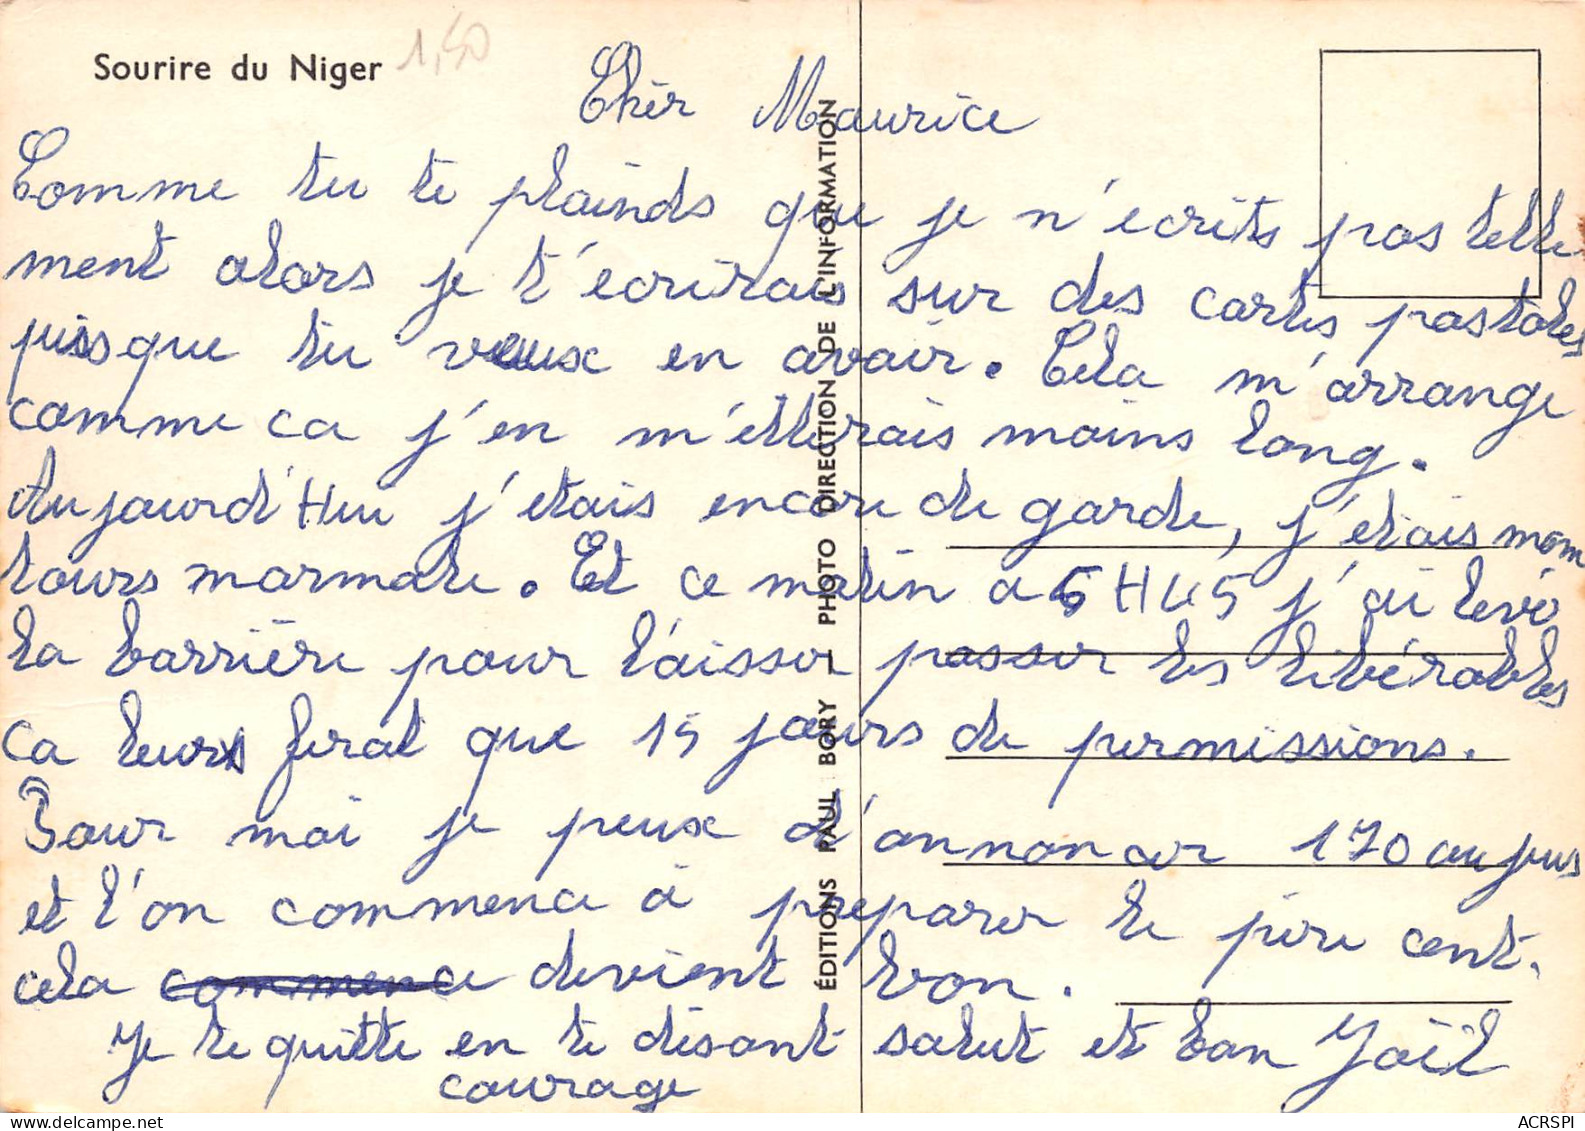 Sourire du Niger
1,50
Cher Maurice
Comme tu te plainds que je n'écrits pas telle
ment alors je t'écrirais sur des cartes postales
puisque tu veux en avoir. Cela m'arrange
comme ca j'en m'etterais moins long.
Aujourd'Hui j'etais encore de garde, j'étais
toujours normale. Et ce matin a 6H45 j'ai levé
la barrière pour l'aisser passer les libérables
ca leurs ferat que 15 jours de permissions.
Pour moi je peux d'annoncer 170 au jus
et l'on commence à préparer le père cent.
cela commence devient bon.
Je te quitte en te disant salut et bon
courage
Joël
ÉDITIONS PAUL BORY - PHOTO DIRECTION DE L'INFORMATION
ACRSPI